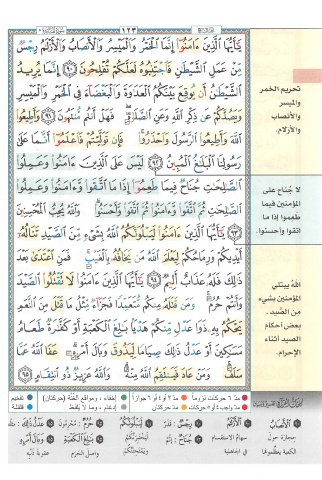 ١٢٣
يَٰٓأَيُّهَا ٱلَّذِينَ ءَامَنُوٓا۟ إِنَّمَا ٱلْخَمْرُ وَٱلْمَيْسِرُ وَٱلْأَنصَابُ وَٱلْأَزْلَٰمُ رِجْسٌ
مِّنْ عَمَلِ ٱلشَّيْطَٰنِ فَٱجْتَنِبُوهُ لَعَلَّكُمْ تُفْلِحُونَ ٩٠ إِنَّمَا يُرِيدُ
ٱلشَّيْطَٰنُ أَن يُوقِعَ بَيْنَكُمُ ٱلْعَدَٰوَةَ وَٱلْبَغْضَآءَ فِى ٱلْخَمْرِ وَٱلْمَيْسِرِ
وَيَصُدَّكُمْ عَن ذِكْرِ ٱللَّهِ وَعَنِ ٱلصَّلَوٰةِ فَهَلْ أَنتُم مُّنتَهُونَ ٩١ وَأَطِيعُوا۟
ٱللَّهَ وَأَطِيعُوا۟ ٱلرَّسُولَ وَٱحْذَرُوا۟ فَإِن تَوَلَّيْتُمْ فَٱعْلَمُوٓا۟ أَنَّمَا عَلَىٰ
رَسُولِنَا ٱلْبَلَٰغُ ٱلْمُبِينُ ٩٢ لَيْسَ عَلَى ٱلَّذِينَ ءَامَنُوا۟ وَعَمِلُوا۟
ٱلصَّٰلِحَٰتِ جُنَاحٌ فِيمَا طَعِمُوٓا۟ إِذَا مَا ٱتَّقَوا۟ وَّءَامَنُوا۟ وَعَمِلُوا۟
ٱلصَّٰلِحَٰتِ ثُمَّ ٱتَّقَوا۟ وَّءَامَنُوا۟ ثُمَّ ٱتَّقَوا۟ وَّأَحْسَنُوا۟ وَٱللَّهُ يُحِبُّ ٱلْمُحْسِنِينَ
٩٣ يَٰٓأَيُّهَا ٱلَّذِينَ ءَامَنُوا۟ لَيَبْلُوَنَّكُمُ ٱللَّهُ بِشَىْءٍ مِّنَ ٱلصَّيْدِ تَنَالُهُۥٓ
أَيْدِيكُمْ وَرِمَاحُكُمْ لِيَعْلَمَ ٱللَّهُ مَن يَخَافُهُۥ بِٱلْغَيْبِ فَمَنِ ٱعْتَدَىٰ بَعْدَ
ذَٰلِكَ فَلَهُۥ عَذَابٌ أَلِيمٌ ٩٤ يَٰٓأَيُّهَا ٱلَّذِينَ ءَامَنُوا۟ لَا تَقْتُلُوا۟ ٱلصَّيْدَ
وَأَنتُمْ حُرُمٌ وَمَن قَتَلَهُۥ مِنكُم مُّتَعَمِّدًا فَجَزَآءٌ مِّثْلُ مَا قَتَلَ مِنَ ٱلنَّعَمِ
يَحْكُمُ بِهِۦ ذَوَا عَدْلٍ مِّنكُمْ هَدْيًۢا بَٰلِغَ ٱلْكَعْبَةِ أَوْ كَفَّٰرَةٌ طَعَامُ
مَسَٰكِينَ أَوْ عَدْلُ ذَٰلِكَ صِيَامًا لِّيَذُوقَ وَبَالَ أَمْرِهِۦ عَفَا ٱللَّهُ عَمَّا
سَلَفَ وَمَنْ عَادَ فَيَنتَقِمُ ٱللَّهُ مِنْهُ وَٱللَّهُ عَزِيزٌ ذُو ٱنتِقَامٍ ٩٥
تحريم الخمر
والميسر
والأنصاب
والأزلام.
لا جُناح على
المؤمنين فيما
طعموا إذا ما
اتقوا وأحسنوا.
اللهُ يبتلي
المؤمنين بشيء
من الصَّيد.
بعض أحكام
الصيد أثناء
الإحرام.
مدّ ٦ حركات لزوماً
مدّ ٢ أو ٤ أو ٦ جوازاً
إخفاء، ومواقع الغنّة (حركتان)
تفخيم
مدّ حركتان
إدغام، وما لا يُلفظ
قلقلة
الأَنصَابُ
حجارة حول
الكعبة يعظّمونها